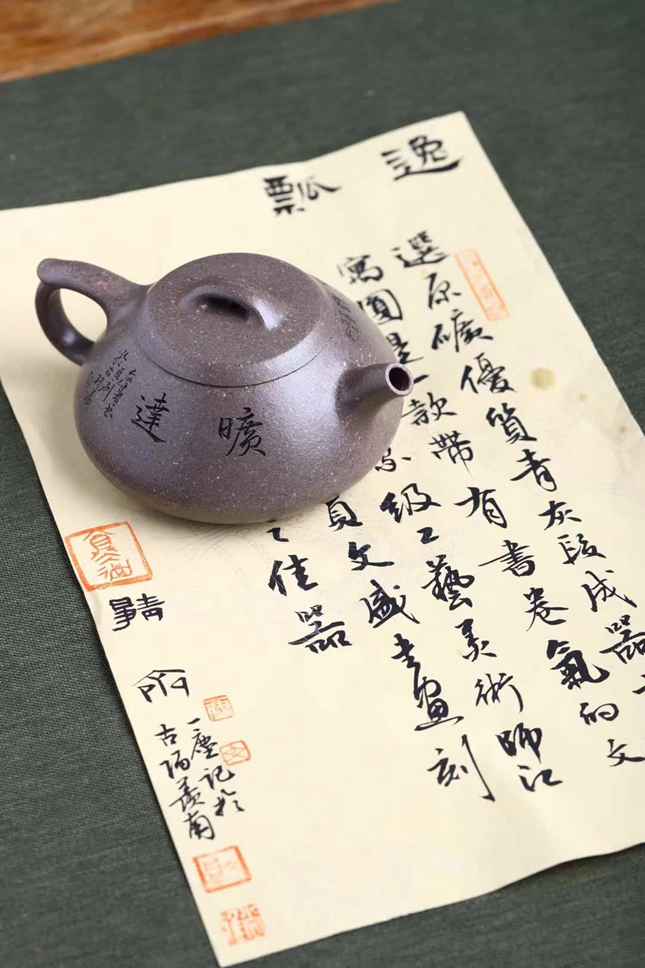 逸瓢
選原礦優質青灰段成器
寓圓是一款帶有書卷氣的文
級工藝美術師江
員文盛書畫刻
佳器
一塵記於
古陽羨南
曠達